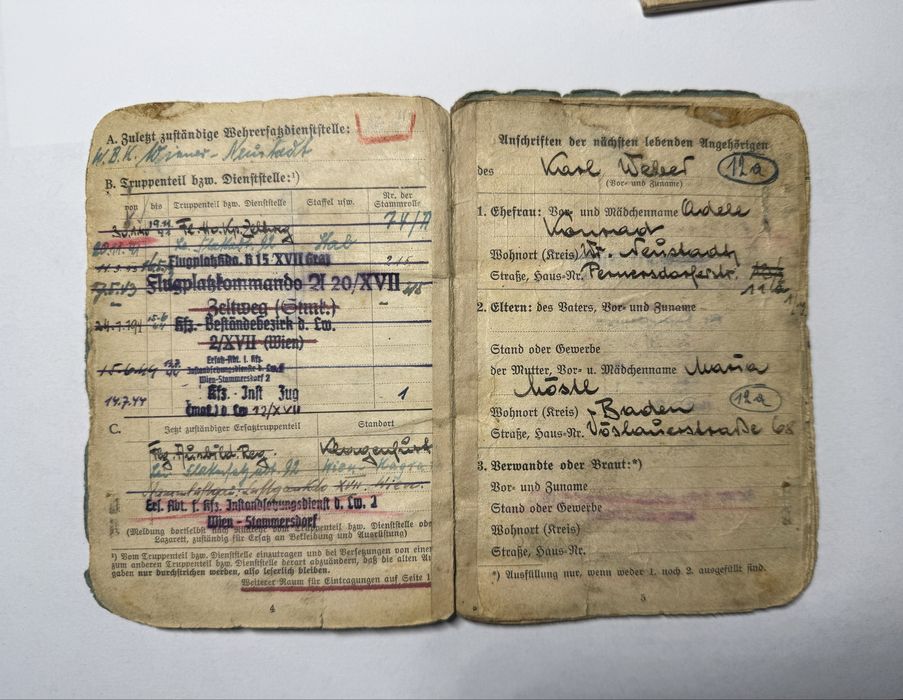 A. Zuletzt zuständige Wehrersatzdienststelle:
W.B.K. Wiener-Neustadt
B. Truppenteil bzw. Dienststelle:¹)
von bis Truppenteil bzw. Dienststelle Staffel usw. Nr. der Stammrolle
74/
20.11.41
Flugplatzkdo. B 15/XVII Graz
7.5.43 Flugplatzkommando A 20/XVII
Zeltweg (Stmk.)
Kfz.-Beständebezirk d. Lw.
2/XVII (Wien)
15.6.44 Ersatz-Abt. f. Kfz.
Instandsetzungsdienste d. Lw. 2
Wien-Stammersdorf 2
14.7.44 Kfz. - Inst Zug 1
12/XVII
C. Jetzt zuständiger Ersatztruppenteil Standort
Klagenfurt
Wien-Kagra
XVII. Wien.
Ers. Abt. f. Kfz. Instandsetzungsdienst d. Lw. 2
Wien - Stammersdorf
(Meldung dortselbst vom Truppenteil bzw. Dienststelle ode
Lazarett, zuständig für Ersatz an Bekleidung und Ausrüstung)
¹) Vom Truppenteil bzw. Dienststelle einzutragen und bei Versetzungen von einer
zum anderen Truppenteil bzw. Dienststelle derart abzuändern, daß die alten An
gaben nur durchstrichen werden, also leserlich bleiben.
Weiterer Raum für Eintragungen auf Seite 1
4
Anschriften der nächsten lebenden Angehörigen
des Karl Weber 12a
(Vor- und Zuname)
1. Ehefrau: Vor- und Mädchenname Adele
Konrad
Wohnort (Kreis) Wr. Neustadt
Straße, Haus-Nr. Pernersdorferstr.
2. Eltern: des Vaters, Vor- und Zuname
Stand oder Gewerbe
der Mutter, Vor- u. Mädchenname Maria
Mössl
Wohnort (Kreis) Baden 12a
Straße, Haus-Nr. Vöslauerstraße 68
3. Verwandte oder Braut:*)
Vor- und Zuname
Stand oder Gewerbe
Wohnort (Kreis)
Straße, Haus-Nr.
*) Ausfüllung nur, wenn weder 1. noch 2. ausgefüllt sind.
5